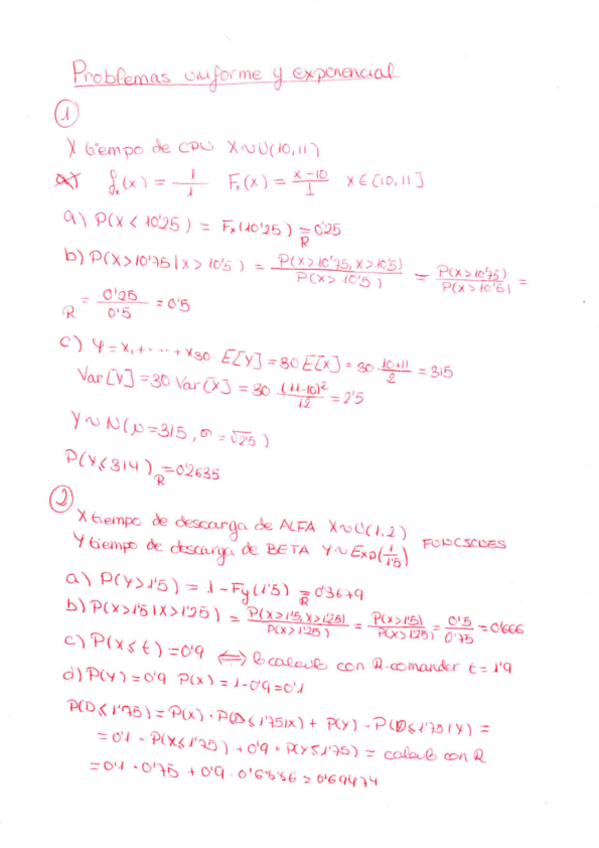 Problemas uniforme y exponencial
①
X tiempo de CPU X∼U(10,11)
fₓ(x) = 1/1 Fₓ(x) = x-10/1 x∈[10,11]
a) P(X < 10'25) = Fₓ(10'25) =R 0'25
b) P(X>10'75|X>10'5) = P(X>10'75, X>10'5)/P(X>10'5) = P(X>10'75)/P(X>10'5) =
=R 0'25/0'5 = 0'5
c) Y = X₁+ ---- + X30. E[Y] = 30 E[X] = 30 · 10+11/2 = 315
Var[Y] = 30 Var[X] = 30 (11-10)²/12 = 2'5
Y∼N(μ=315, σ=√2'5)
P(Y≤314) =R 0'2635
②
X tiempo de descarga de ALFA X∼U(1,2)
Y tiempo de descarga de BETA Y∼Exp(1/1'5) FUNCIONES
a) P(Y>1'5) = 1 - Fy(1'5) =R 0'3679
b) P(X>1'5|X>1'25) = P(X>1'5, X>1'25)/P(X>1'25) = P(X>1'5)/P(X>1'25) = 0'5/0'75 = 0'666
c) P(X≤t) = 0'9 ⟺ lo calculo con R-comander t = 1'9
d) P(Y) = 0'9 P(X) = 1-0'9 = 0'1
P(D≤1'75) = P(X) · P(D≤1'75|X) + P(Y) · P(D≤1'75|Y) =
= 0'1 · P(X≤1'75) + 0'9 · P(Y≤1'75) = calculo con R
= 0'1 · 0'75 + 0'9 · 0'6886 = 0'69474